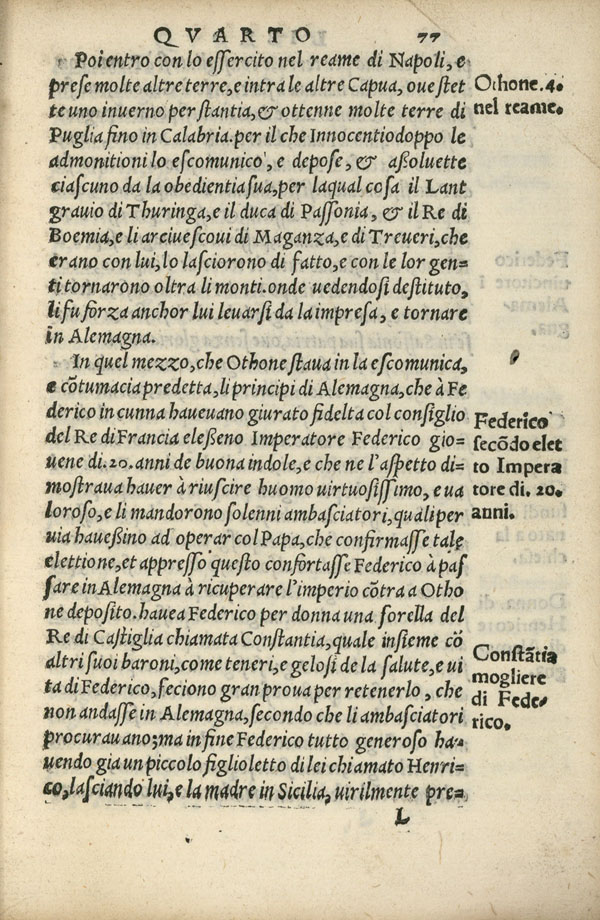 QVARTO 77
Poi entro con lo essercito nel reame di Napoli, e
prese molte altre terre, e intra le altre Capua, oue stet
te uno inuerno per stantia, & ottenne molte terre di
Puglia fino in Calabria. per il che Innocentio doppo le
admonitioni lo escomunico, e depose, & aßoluette
ciascuno da la obedientia sua, per laqual cosa il Lant
grauio di Thuringa, e il duca di Passonia, & il Re di
Boemia, e li arciuescoui di Maganza, e di Treueri, che
erano con lui, lo lasciorono di fatto, e con le lor gen=
ti tornarono oltra li monti. onde uedendosi destituto,
li fu forza anchor lui leuarsi da la impresa, e tornare
in Alemagna.
In quel mezzo, che Othone staua in la escomunica,
e cõtumacia predetta, li principi di Alemagna, che à Fe
derico in cunna haueuano giurato fidelta col consiglio
del Re di Francia eleßeno Imperatore Federico gio=
uene di .20. anni de buona indole, e che ne l'aspetto di=
mostraua hauer à riuscire huomo uirtuosissimo, e ua
loroso, e li mandorono solenni ambasciatori, quali per
uia haueßino ad operar col Papa, che confirmasse tale
elettione, et appresso questo confortasse Federico à pas
sare in Alemagna à ricuperare l'imperio cõtra a Otho
ne deposito. hauea Federico per donna una sorella del
Re di Castiglia chiamata Constantia, quale insieme cõ
altri suoi baroni, come teneri, e gelosi de la salute, e ui
ta di Federico, feciono gran proua per retenerlo, che
non andasse in Alemagna, secondo che li ambasciatori
procurauano; ma in fine Federico tutto generoso ha=
uendo gia un piccolo figlioletto di lei chiamato Henri=
co, lasciando lui, e la madre in Sicilia, uirilmente pre=
L
Othone .4.
nel reame.
Federico
secõdo elet
to Impera
tore di .20.
anni.
Constãtia
mogliere
di Fede=
rico.